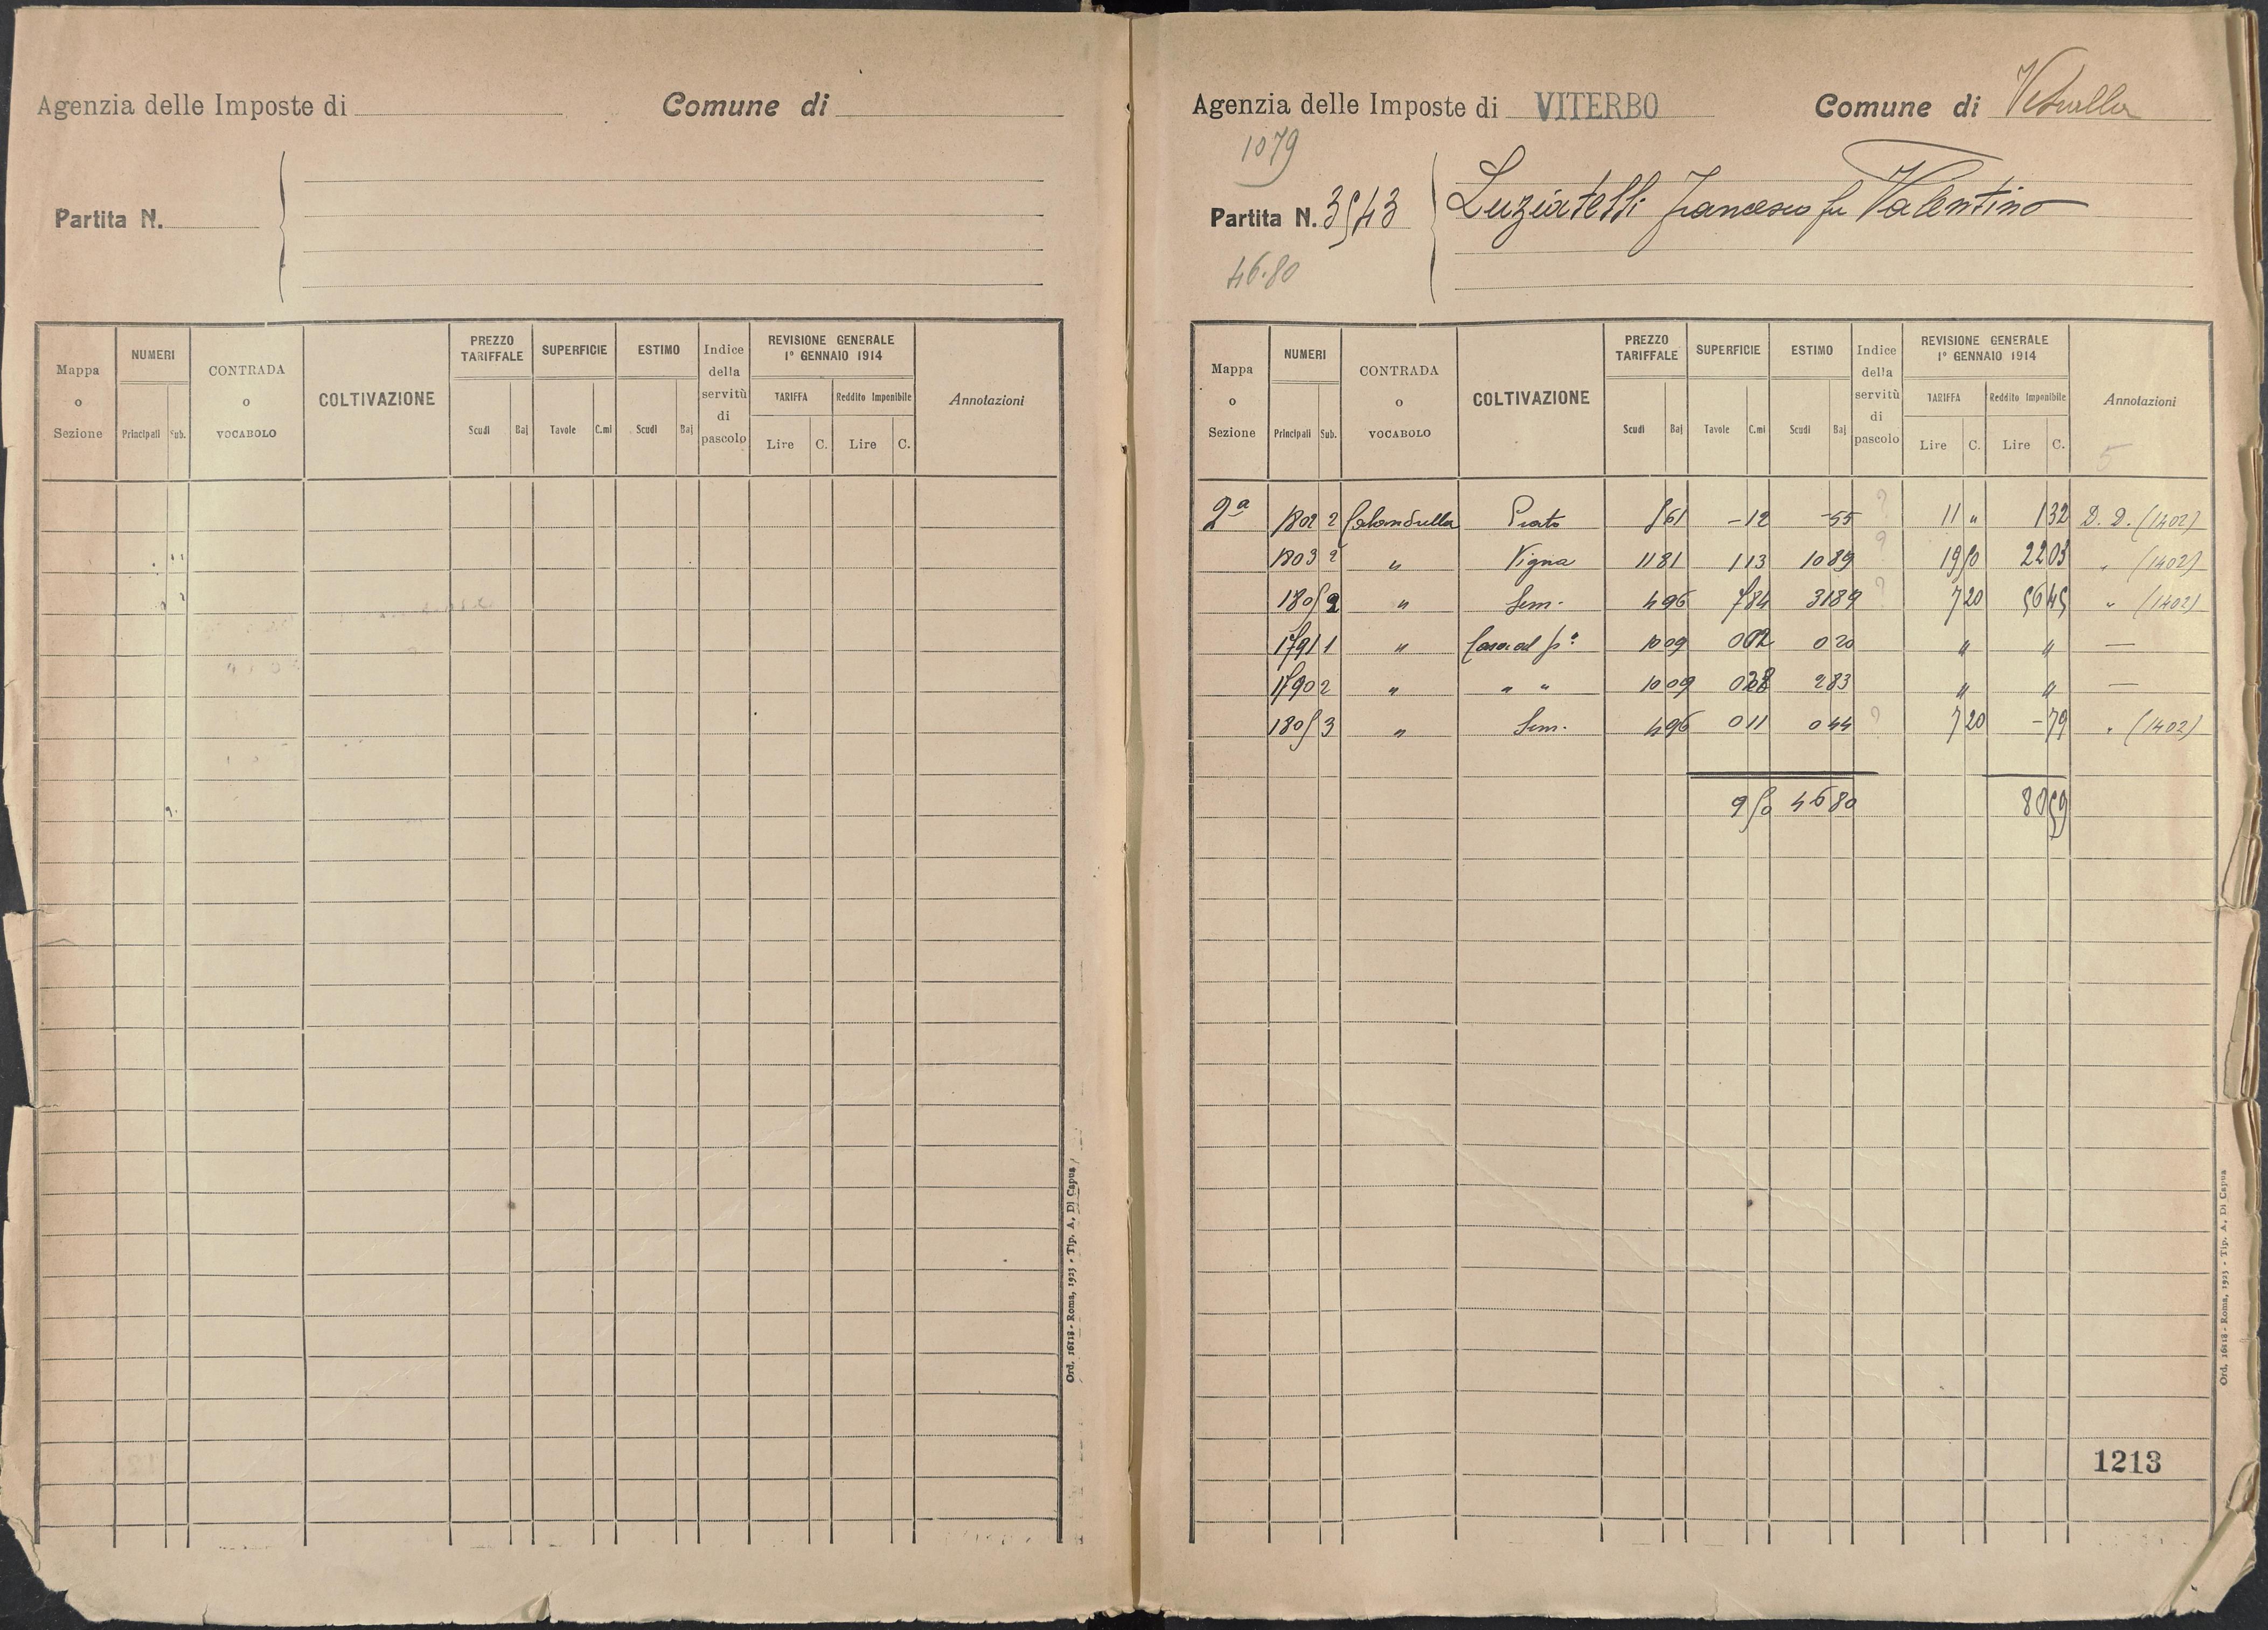 Agenzia delle Imposte di
Comune di
Partita N.
Mappa o Sezione
NUMERI
Principali
Sub.
CONTRADA o VOCABOLO
COLTIVAZIONE
PREZZO TARIFFALE
Scudi
Baj
SUPERFICIE
Tavole
C.mi
ESTIMO
Scudi
Baj
Indice della servitù di pascolo
REVISIONE GENERALE 1° GENNAIO 1914
TARIFFA
Lire
C.
Reddito Imponibile
Lire
C.
Annotazioni
Ord. 16118 - Roma, 1923 - Tip. A. Di Capua
Agenzia delle Imposte di VITERBO
Comune di Vetralla
1079
Partita N. 3543
Luziatelli Francesco fu Valentino
46.80
Mappa o Sezione
NUMERI
Principali
Sub.
CONTRADA o VOCABOLO
COLTIVAZIONE
PREZZO TARIFFALE
Scudi
Baj
SUPERFICIE
Tavole
C.mi
ESTIMO
Scudi
Baj
Indice della servitù di pascolo
REVISIONE GENERALE 1° GENNAIO 1914
TARIFFA
Lire
C.
Reddito Imponibile
Lire
C.
Annotazioni
5
2a 1802 2 Calandrella Prato 4 61 - 12 - 55 ? 11 " 1 32 D. D. (1402)
1803 2 " Vigna 11 81 1 13 10 89 ? 19 50 22 03 " (1402)
1805 2 " Sem. 4 96 7 84 31 89 ? 7 20 56 45 " (1402)
1791 1 " Casa ad 10 09 0 02 0 20 " " —
1790 2 " " " 10 09 0 28 2 83 " " —
1805 3 " Sem. 4 96 0 11 0 44 ? 7 20 - 79 " (1402)
9 50 46 80 80 59
1213
Ord. 16118 - Roma, 1923 - Tip. A. Di Capua